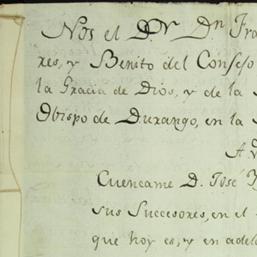 Nos el D.r D.n Fra
res, y Benito del Consejo
la Gracia de Dios, y de la
Obispo de Durango, en la
A
Cuencame D. José
sus Successores, en el
que hoy es, y en adel